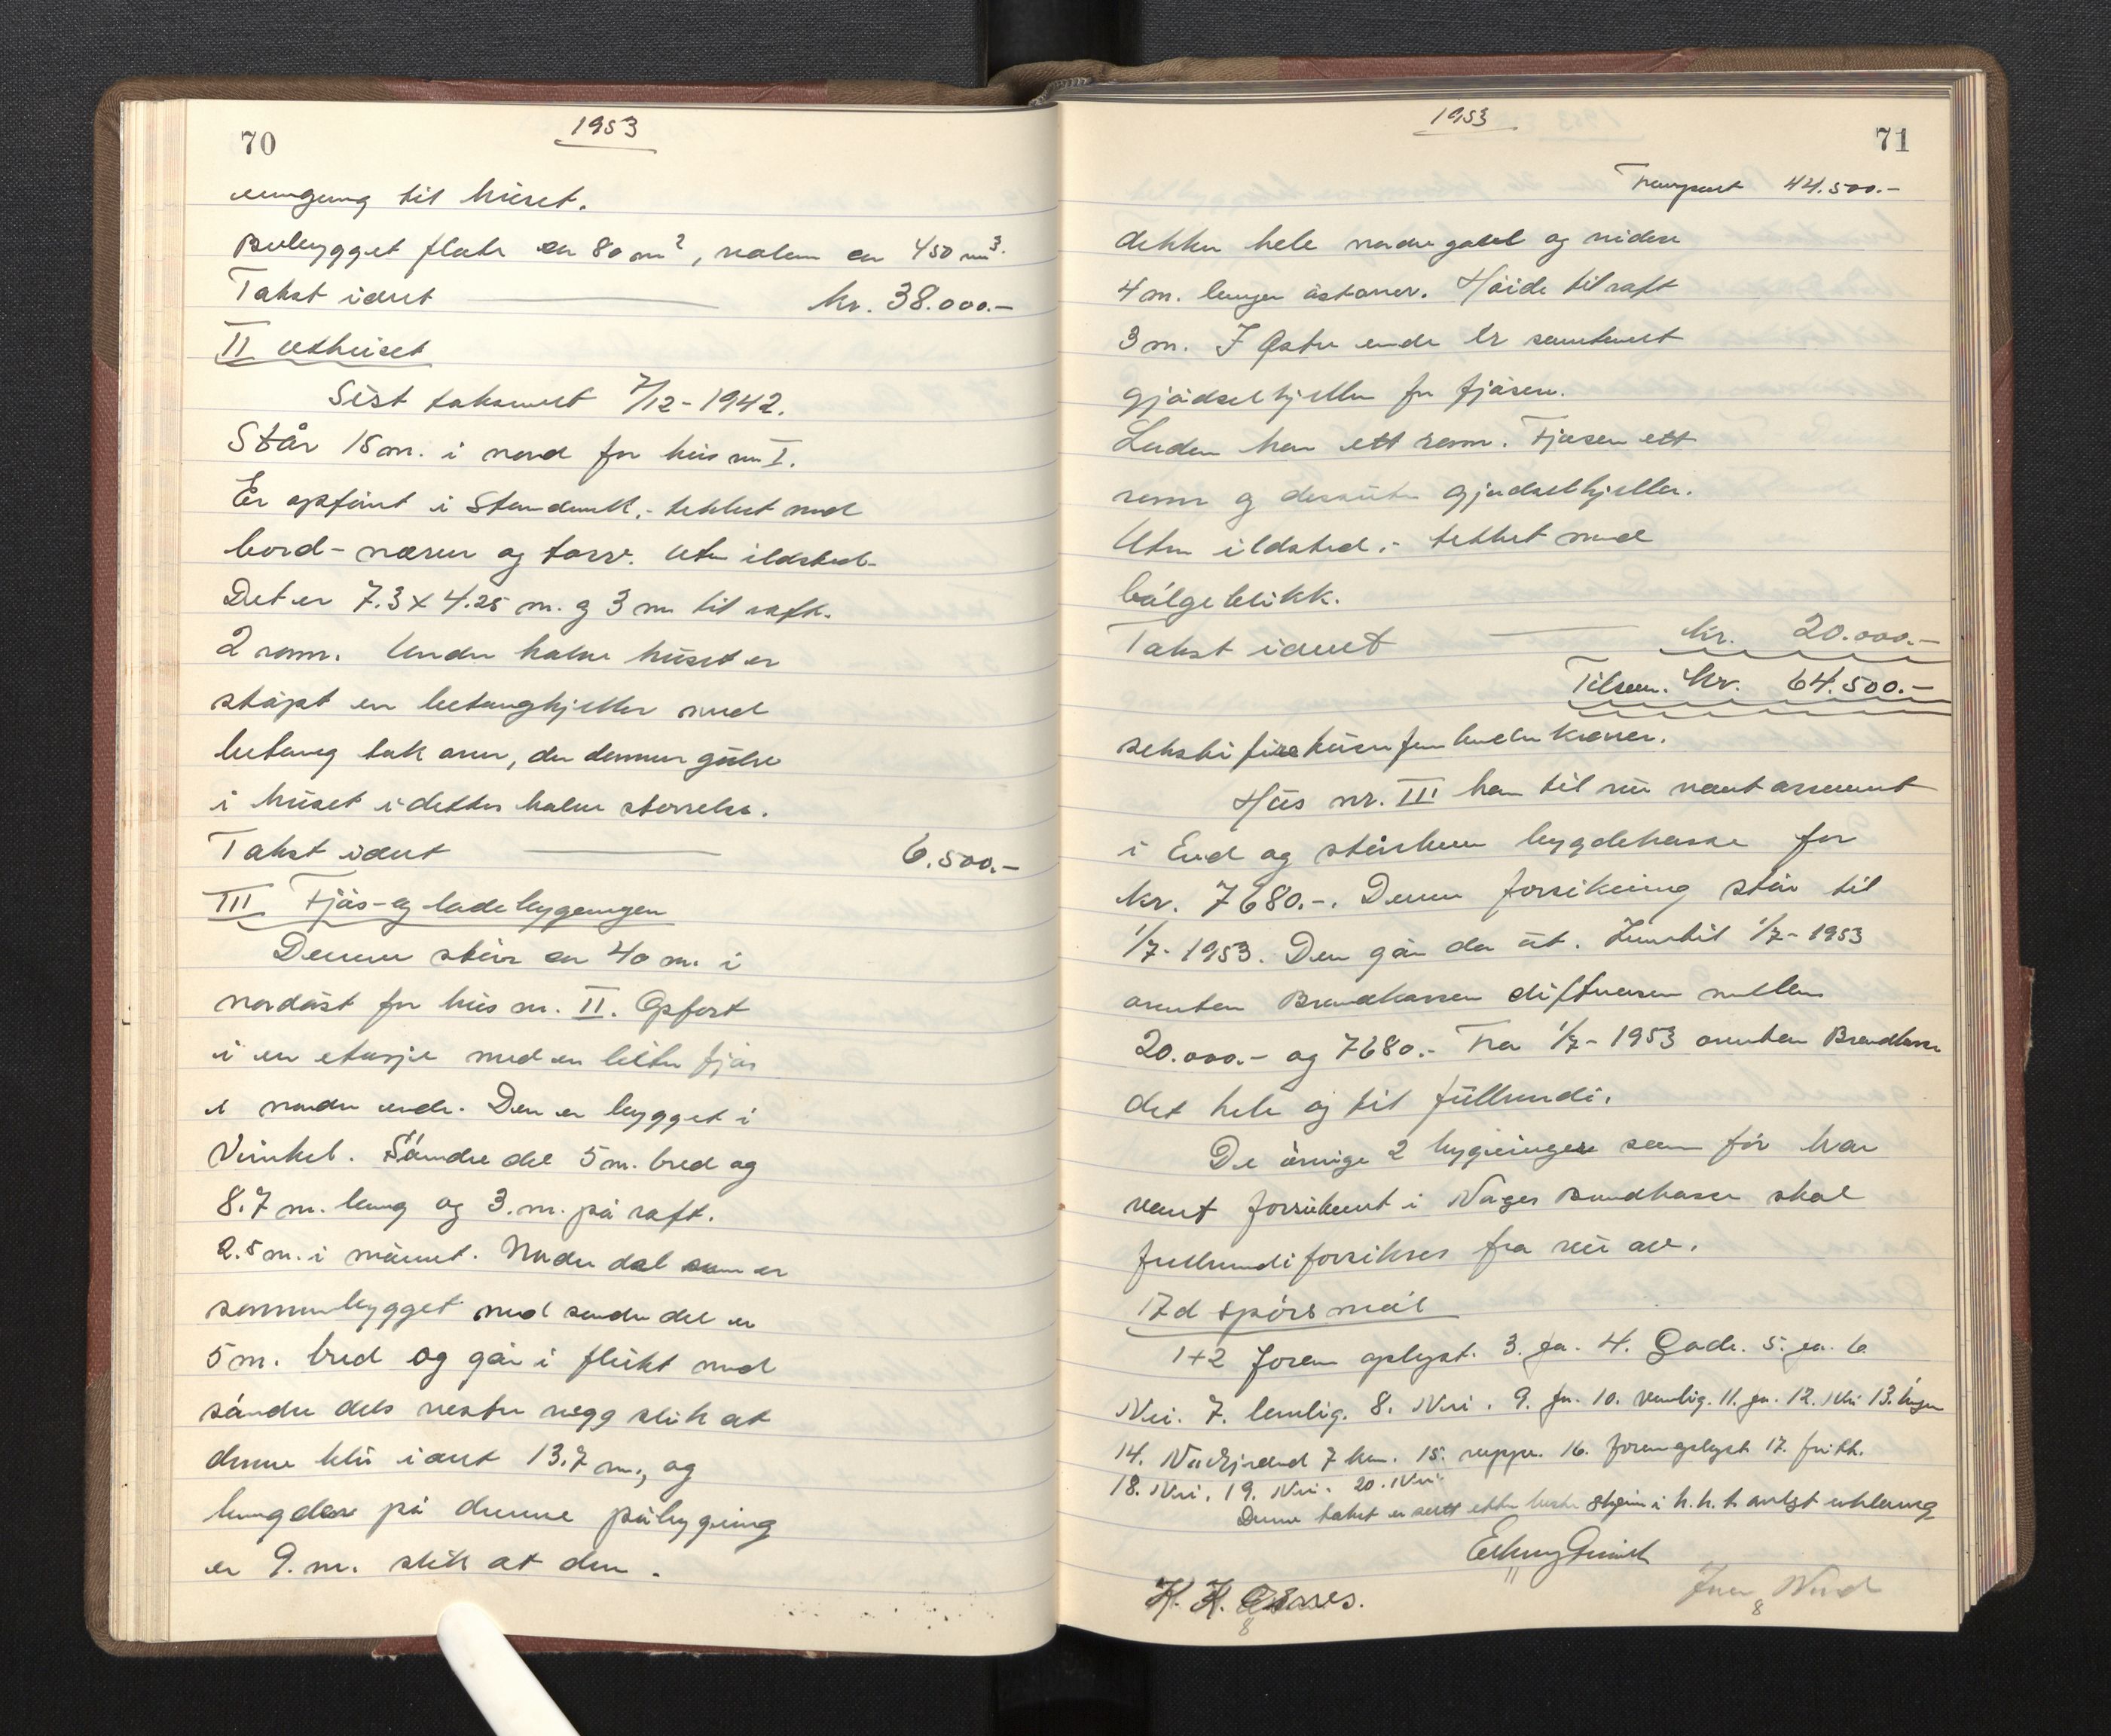 70
1953
inngang til huset.
Bebygget flate er 80 m², volum er 450 m³.
Takst ident kr. 38.000.-
II Uthuset
Sist taksert 7/12-1942.
Står 15 m. i nord for hus nr I.
Er opført i Standverk,- tekket med
bord- never og torv. Uten ildsted.
Det er 7.3 x 4.25 m. og 3 m til raft.
2 rom. Under halve huset er
støpt en betongkjeller med
betong tak over, der danner gulv
i huset i dettes halve størrelse.
Takst ident 6.500.-
III Fjøs- og ladebygningen
Denne står ca 40 m. i
nordøst for hus nr. II. Opført
i en etasje med en liten fjøs
i nordre ende. Den er bygget i
Vinkel. Søndre del 5 m. bred og
8.7 m. lang og 3. m. på raft.
2.5 m. i mønet. Nordre del som er
sammenbygget med søndre del er
5 m. bred og går i flukt med
søndre dels vestre vegg slik at
denne blir i alt 13.7 m., og
lengden på denne påbygging
er 9. m. slik at den
1953
71
Transport 44.500.-
dekker hele nordre gavel og videre
4 m. lenger østover. Høide til raft
3 m. I Østre ende er sementert
gjødselkjeller for fjøsen.
Laden har ett rom. Fjøsen ett
rom og dessuten gjødselkjeller.
Uten ildsted,- tekket med
bølgeblikk.
Takst ident kr. 20.000.-
Tilsam. kr. 64.500.-
seksti fire tusen fem hundre kroner.
Hus nr. III har til nu vært assurert
i Eid og bygdekasse for
kr. 7680.-. Denne forsikring står til
1/7-1953. Den går da ut. Inntil 1/7-1953
overtar Brandkassen differensen mellem
20.000.- og 7680.- Fra 1/7-1953 overtar Brandkassen
det hele og til fullverdi.
De øvrige 2 bygninger som før har
vært forsikret i Norges Brandkasse skal
fullverdiforsikres fra nu av.
17d spørsmål
1+2 Foran oplyst. 3. Ja. 4. Gode. 5. Ja. 6.
Nei. 7. lemlig. 8. Nei. 9. Ja. 10. vanlig. 11. Ja. 12. Nei 13. Ingen
14. 7 km. 15. 16. Foran oplyst 17. fritt.
18. Nei. 19. Nei. 20. Nei.
Denne takst er satt etter beste skjønn i h. h. t. avlagt erklæring